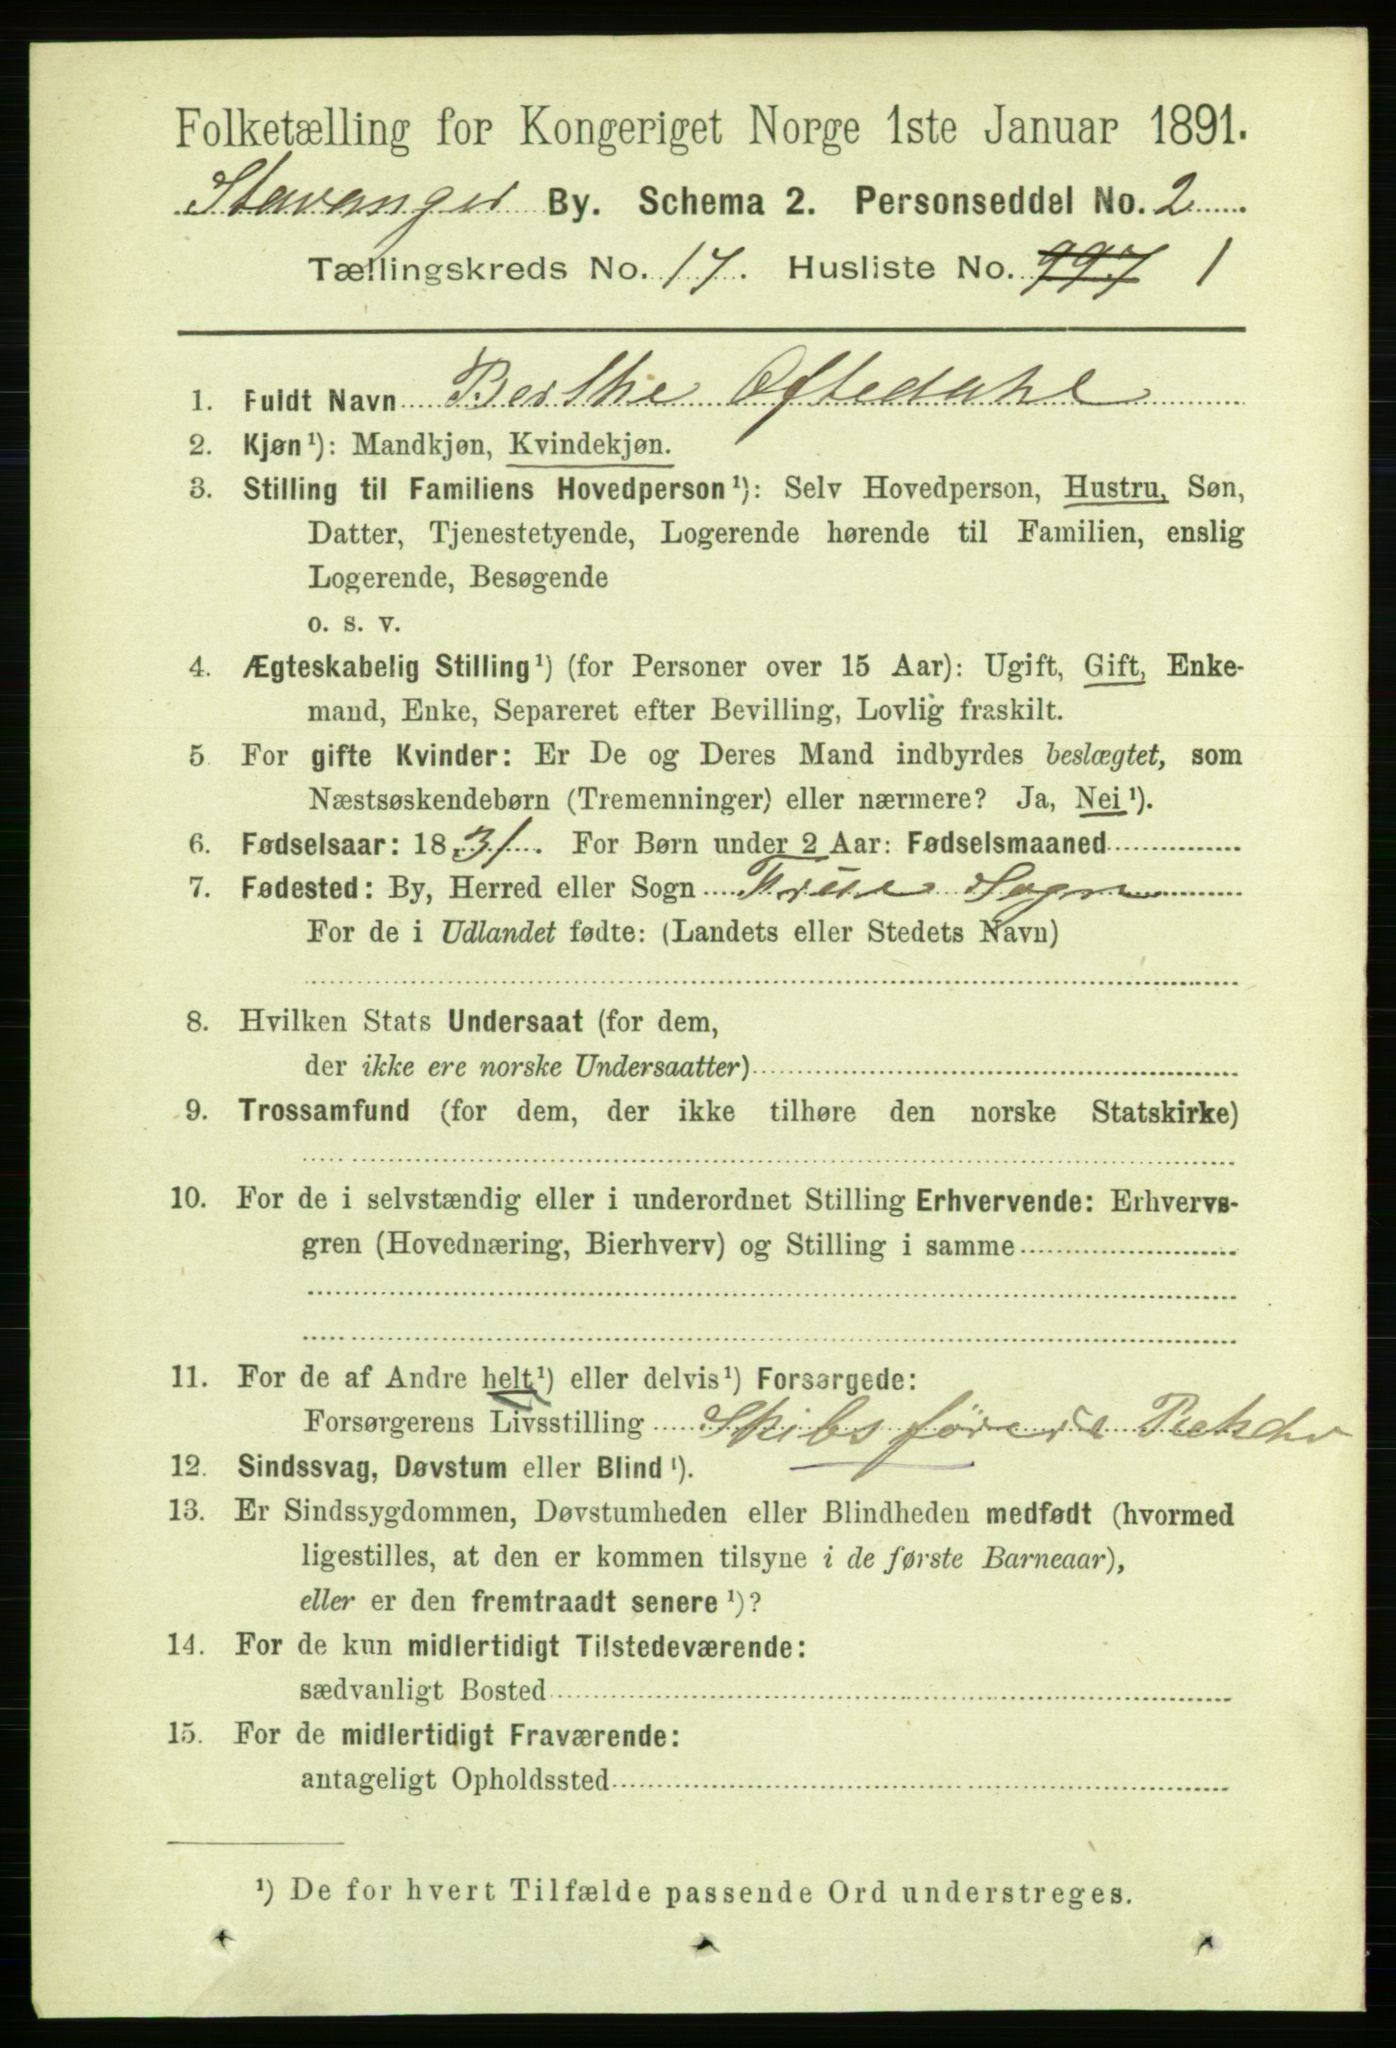 Folketælling for Kongeriget Norge 1ste Januar 1891.
Stavanger By. Schema 2. Personseddel No. 2
Tællingskreds No. 17. Husliste No. 997 1
1. Fuldt Navn Berthe Oftedahl
2. Kjøn¹): Mandkjøn, Kvindekjøn.
3. Stilling til Familiens Hovedperson¹): Selv Hovedperson, Hustru, Søn,
Datter, Tjenestetyende, Logerende hørende til Familien, enslig
Logerende, Besøgende
o. s. v.
4. Ægteskabelig Stilling¹) (for Personer over 15 Aar): Ugift, Gift, Enke-
mand, Enke, Separeret efter Bevilling, Lovlig fraskilt.
5 For gifte Kvinder: Er De og Deres Mand indbyrdes beslægtet, som
Næstsøskendebørn (Tremenninger) eller nærmere? Ja, Nei¹).
6. Fødselsaar: 1831. For Børn under 2 Aar: Fødselsmaaned
7. Fødested: By, Herred eller Sogn Sogn
For de i Udlandet fødte: (Landets eller Stedets Navn)
8. Hvilken Stats Undersaat (for dem,
der ikke ere norske Undersaatter)
9. Trossamfund (for dem, der ikke tilhøre den norske Statskirke)
10. For de i selvstændig eller i underordnet Stilling Erhvervende: Erhvervs-
gren (Hovednæring, Bierhverv) og Stilling i samme
11. For de af Andre helt¹) eller delvis¹) Forsørgede:
Forsørgerens Livsstilling Skibsfører
12. Sindssvag, Døvstum eller Blind¹).
13. Er Sindssygdommen, Døvstumheden eller Blindheden medfødt (hvormed
ligestilles, at den er kommen tilsyne i de første Barneaar),
eller er den fremtraadt senere¹)?
14. For de kun midlertidigt Tilstedeværende:
sædvanligt Bosted
15. For de midlertidigt Fraværende:
antageligt Opholdssted
¹) De for hvert Tilfælde passende Ord understreges.